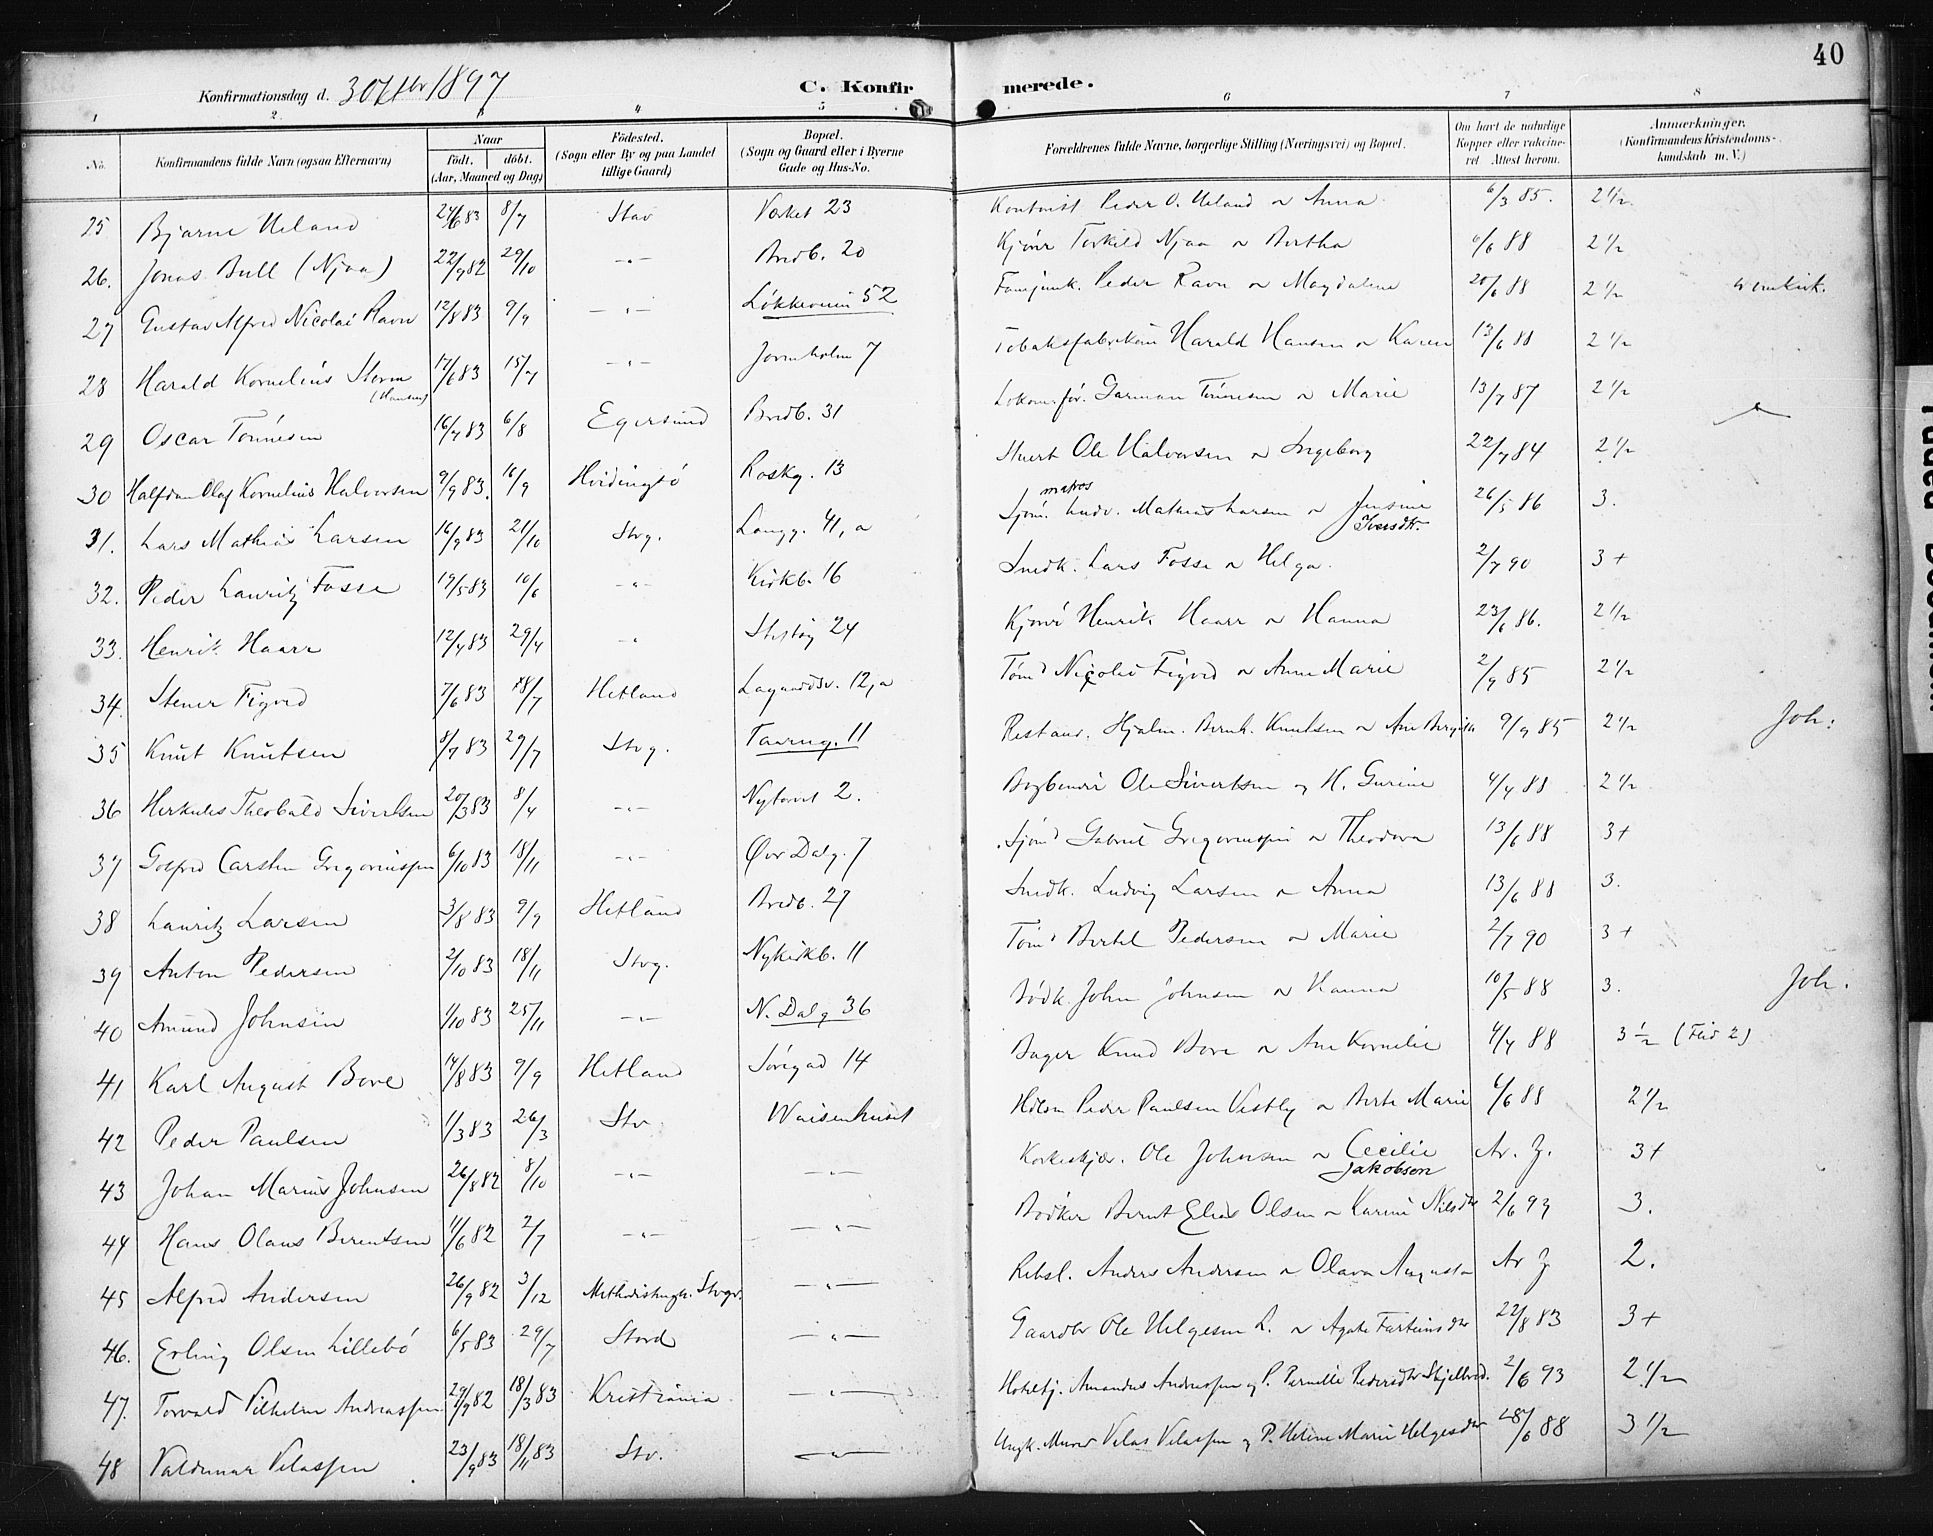 40
Konfirmationsdag d. 3 Oktbr 1897 C. Konfirmerede.
1 2 3 4 5 6 7 8
No. Konfirmandens fulde Navn (ogsaa Efternavn) Naar født. døbt. (Aar, Maaned og Dag) Födested. (Sogn eller By og paa Landet tillige Gaard) Bopæl. (Sogn og Gaard eller i Byerne Gade og Hus-No. Forældrenes fulde Navne, borgerlige Stilling (Næringsvei) og Bopæl. Om havt de naturlige Kopper eller vaccineret Attest herom. Anmærkninger. (Konfirmandens Kristendomskundskab m. V.)
25 Bjarne Ueland 24/6 83 8/7 Stav Verket 23 Kontorist Peder O. Ueland & Anna 6/3 85. 2 1/2.
26. Jonas Bull (Njaa) 22/9 82 29/10 -"- Bredb. 20 Kjører Torkild Njaa & Bertha 6/6 88 2 1/2
27 Gustav Alfred Nicolai Ravn 12/8 83 9/9 -"- Løkkeveien 52 Peder Ravn & Magdalene 20/6 88 2 1/2
28 Harald Kornelius Storm (Hansen) 17/6 83 15/7 -"- Jorenholm 7 Tobaksfabrikør Harald Hansen & Karen 13/6 88 2 1/2
29 Oscar Tønnesen 16/7 83 6/8 Egersund Bredb. 31 Lokom.før. Garman Tønnesen & Marie 13/7 87 2 1/2
30 Halfdan Olaf Kornelius Halvorsen 9/9 83. 16/9 Hvidingsö Roskg. 13 Stuert Ole Halvorsen & Ingeborg 22/7 84 2 1/2
31. Lars Mathias Larsen 16/9 83 21/10 Stvg. Langg. 41, a Sjøm. matros Ludv. Mathias Larsen & Jensine Iversdtr. 26/5 86 3.
32. Peder Lauritz Fosse 19/5 83 10/6 -"- Kirkb. 16 Snedk. Lars Fosse & Helga. 2/7 90 3+
33. Henrik Haarr 12/4 83 29/4 -"- 24 Kjører Henrik Haarr & Hanna 23/6 86. 2 1/2
34. Stener Figved 7/6 83 18/7 Hetland Lagaardsv. 12, a Tøm. Nicolai Figved & Anne Marie 2/9 85 2 1/2
35 Knut Knutsen 8/7 83 29/7 Stvg. 11 Restaur. Hjalm. Bernh. Knutsen & Ane Bergitte 9/9 85 2 1/2 Joh.
36 Herkules Theobald Sivertsen 20/3 83 8/4 -"- Nytorvet 2. Bogbinder Ole Sivertsen og H. Gurine 4/7 88 2 1/2
37 Gotfred Carsten Gregoriussen 6/10 83 18/11 -"- Øvr Dalg. 7 Sjøm. Gabriel Gregoriussen & Theodora 13/6 88 3+
38 Lauritz Larsen 3/8 83 9/9 Hetland Bredb. 27 Snedk. Ludvig Larsen & Anna 13/6 88 3.
39 Anton Pedersen 2/10 83 18/11 Stvg. Nykirkb. 11 Tøm. Bertel Pedersen & Marie 2/7 90 3+
40 Amund Johnsen 1/10 83 25/11 -"- N. Dalg 36 Bødk. John Johnsen & Hanna 10/5 88 3. Joh.
41 Karl August Bore 14/8 83 9/9 Hetland 14 Bager Knud Bore & Ane Kornelie 4/7 88 3 1/2 (Flid 2)
42 Peder Paulsen 1/3 83 26/3 Stv. Waisenhuset Peder Paulsen Vestly & Berte Marie 6/6 88 2 1/2
43 Johan Marius Johnsen 26/8 82 8/10 -"- -"- Korkeskjær. Ole Johnsen & Cecilie Jakobsen Ar. Z. 3+
44 Hans Olaus Berentsen 11/6 82 2/7 -"- -"- Bødker Bernt Elias Olsen & Karine Nilsdtr 2/6 93 3.
45 Alfred Andersen 26/9 82 3/12 Stvgr. -"- Rebsl. Anders Andersen & Olava Augusta Ar Z 2.
46. Erling Olsen Lillebö 6/5 83 29/7 Stord -"- Gaardbr Ole Helgesen L. & Agate 22/8 83 3+
47. Torvald Vilhelm Andreassen 29/9 82 18/3 83 Kristiania -"- Amandus Andreassen og P. Pernille Pedersdtr 2/6 93 2 1/2
48 Valdemar Velassen 23/9 83 18/11 83 Stv. -"- Ungk. Murer Velas Velassen og P. Heline Marie Helgesdtr 28/6 88 3 1/2